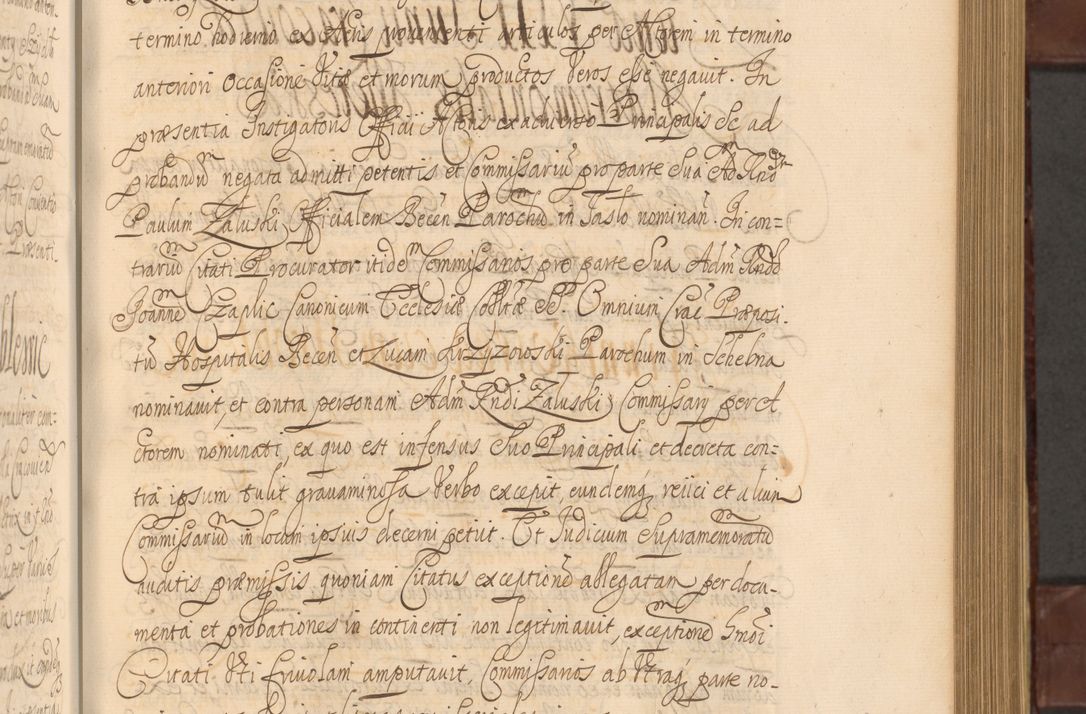 termino hodierno existens provenienti articulos per Actorem in termino
anteriori Occasione Vitæ et morum productos Veros esse negavit. In
præsentia Instigatoris Officii Actoris ex adverso Principalis Sc ad
probandũ negata admitti petentis et Commissariũ pro parte Sua Adm Rnd
Paulum Załuski Officialem Becen Parochũ in Jasło nominan. In con=
trariũ Citati Procurator itidẽ Commissarios pro parte Sua Adm Rndo
Joannẽ Czaplic Canonicum Ecclesiæ Colltæ SS. Omnium Crac Præposi-
tũ Hospitalis Becen et Lucam Krzyżowski Parochum in Schebna
nominavit, et contra personam Adm Rndi Załuski Commissarij per A
ctorem nominati, ex quo est infensus Suo Principali et decreta con=
tra ipsum tulit gravaminosa Verbo excepit, eundemq, reiici et alium
Commissariũ in locum ipsius decerni petiit. Et Judicium Supramemoratũ
auditis præmissis quoniam Citatus exceptionẽ allegatam per docu-
menta et probationes in continenti non legitimavit, exceptionẽ hmõi
Citati Uti frivolam amputavit, Commissarios ab Utraq, parte no-